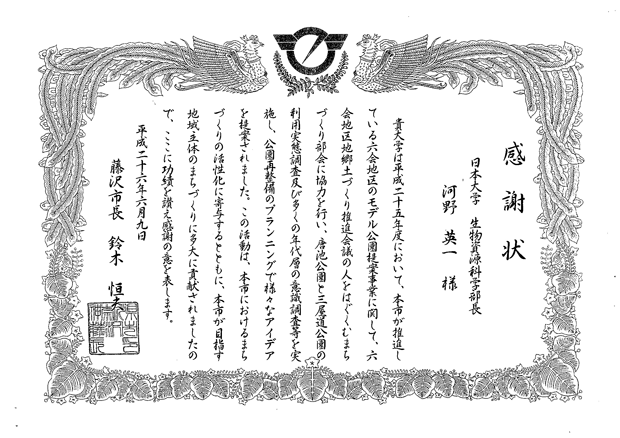 感謝状
日本大学 生物資源科学部長
河野 英一 様
貴大学は平成二十五年度において、本市が推進し
ている六会地区のモデル公園提案事業に関して、六
会地区地郷土づくり推進会議の人をはぐくむまち
づくり部会に協力を行い、唐池公園と三屋道公園の
利用実態調査及び多くの年代層の意識調査等を実
施し、公園再整備のプランニングで様々なアイデア
を提案されました。この活動は、本市におけるまち
づくりの活性化に寄与するとともに、本市が目指す
地域主体のまちづくりに多大に貢献されましたの
で、ここに功績を讃え感謝の意を表します。
平成二十六年六月九日
藤沢市長 鈴木 恒夫